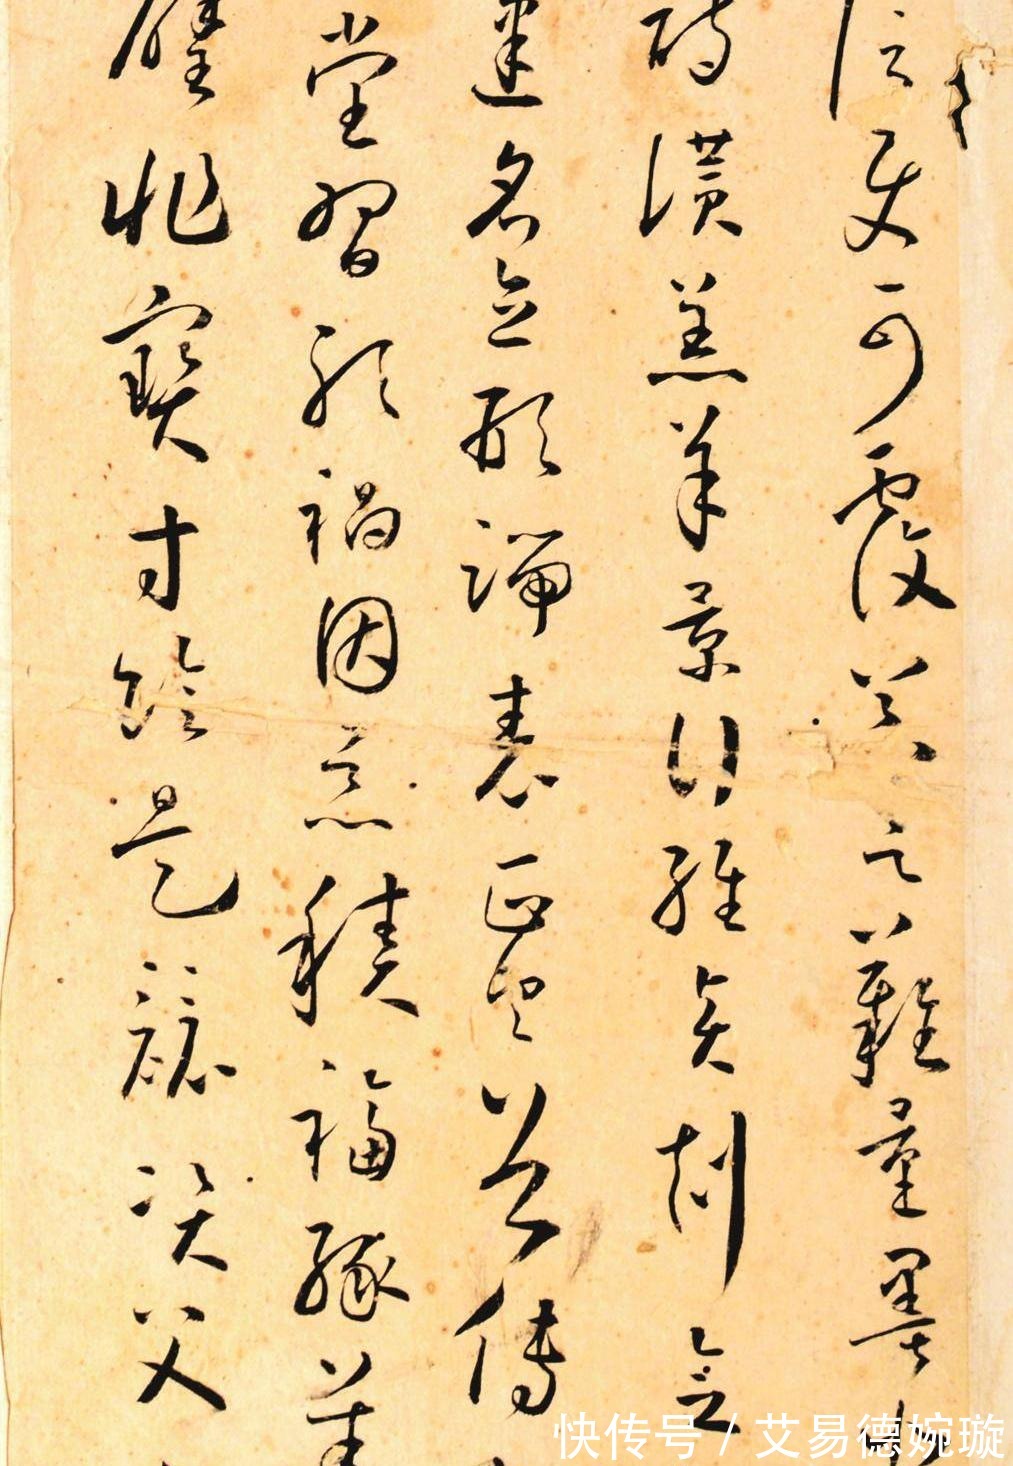 信使可覆器欲難量墨悲
詩讚羔羊景行維賢剋念
建名立形端表正空谷傳
堂習聽禍因惡積福緣善
璧非寶寸陰是競資父
快传号 / 艾易德婉璇